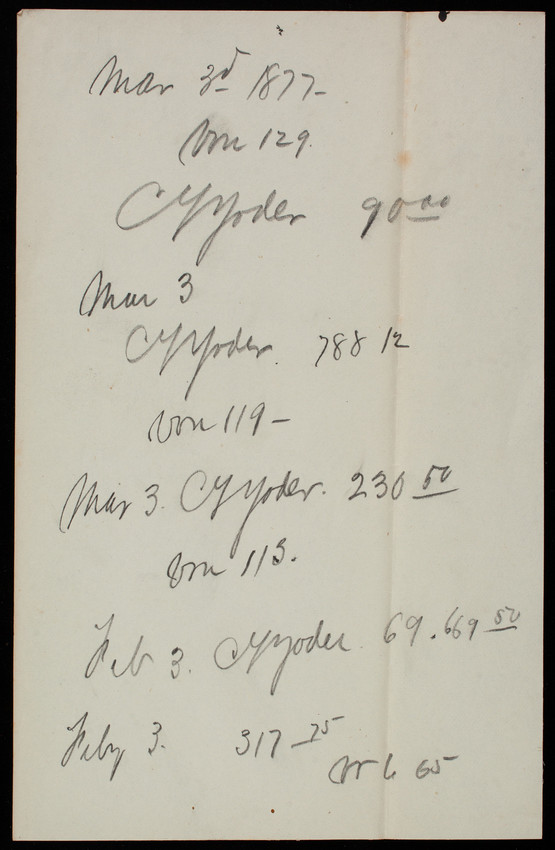 Mar 3d 1877-
Vou 129.
C Y Yoder 90 00
Mar 3
C Y Yoder. 788 12
Vou 119-
Mar 3. C Y Yoder. 230 50
Vou 113.
Feb 3. C Y Yoder 69.669 50
Feby 3. 317 75
65